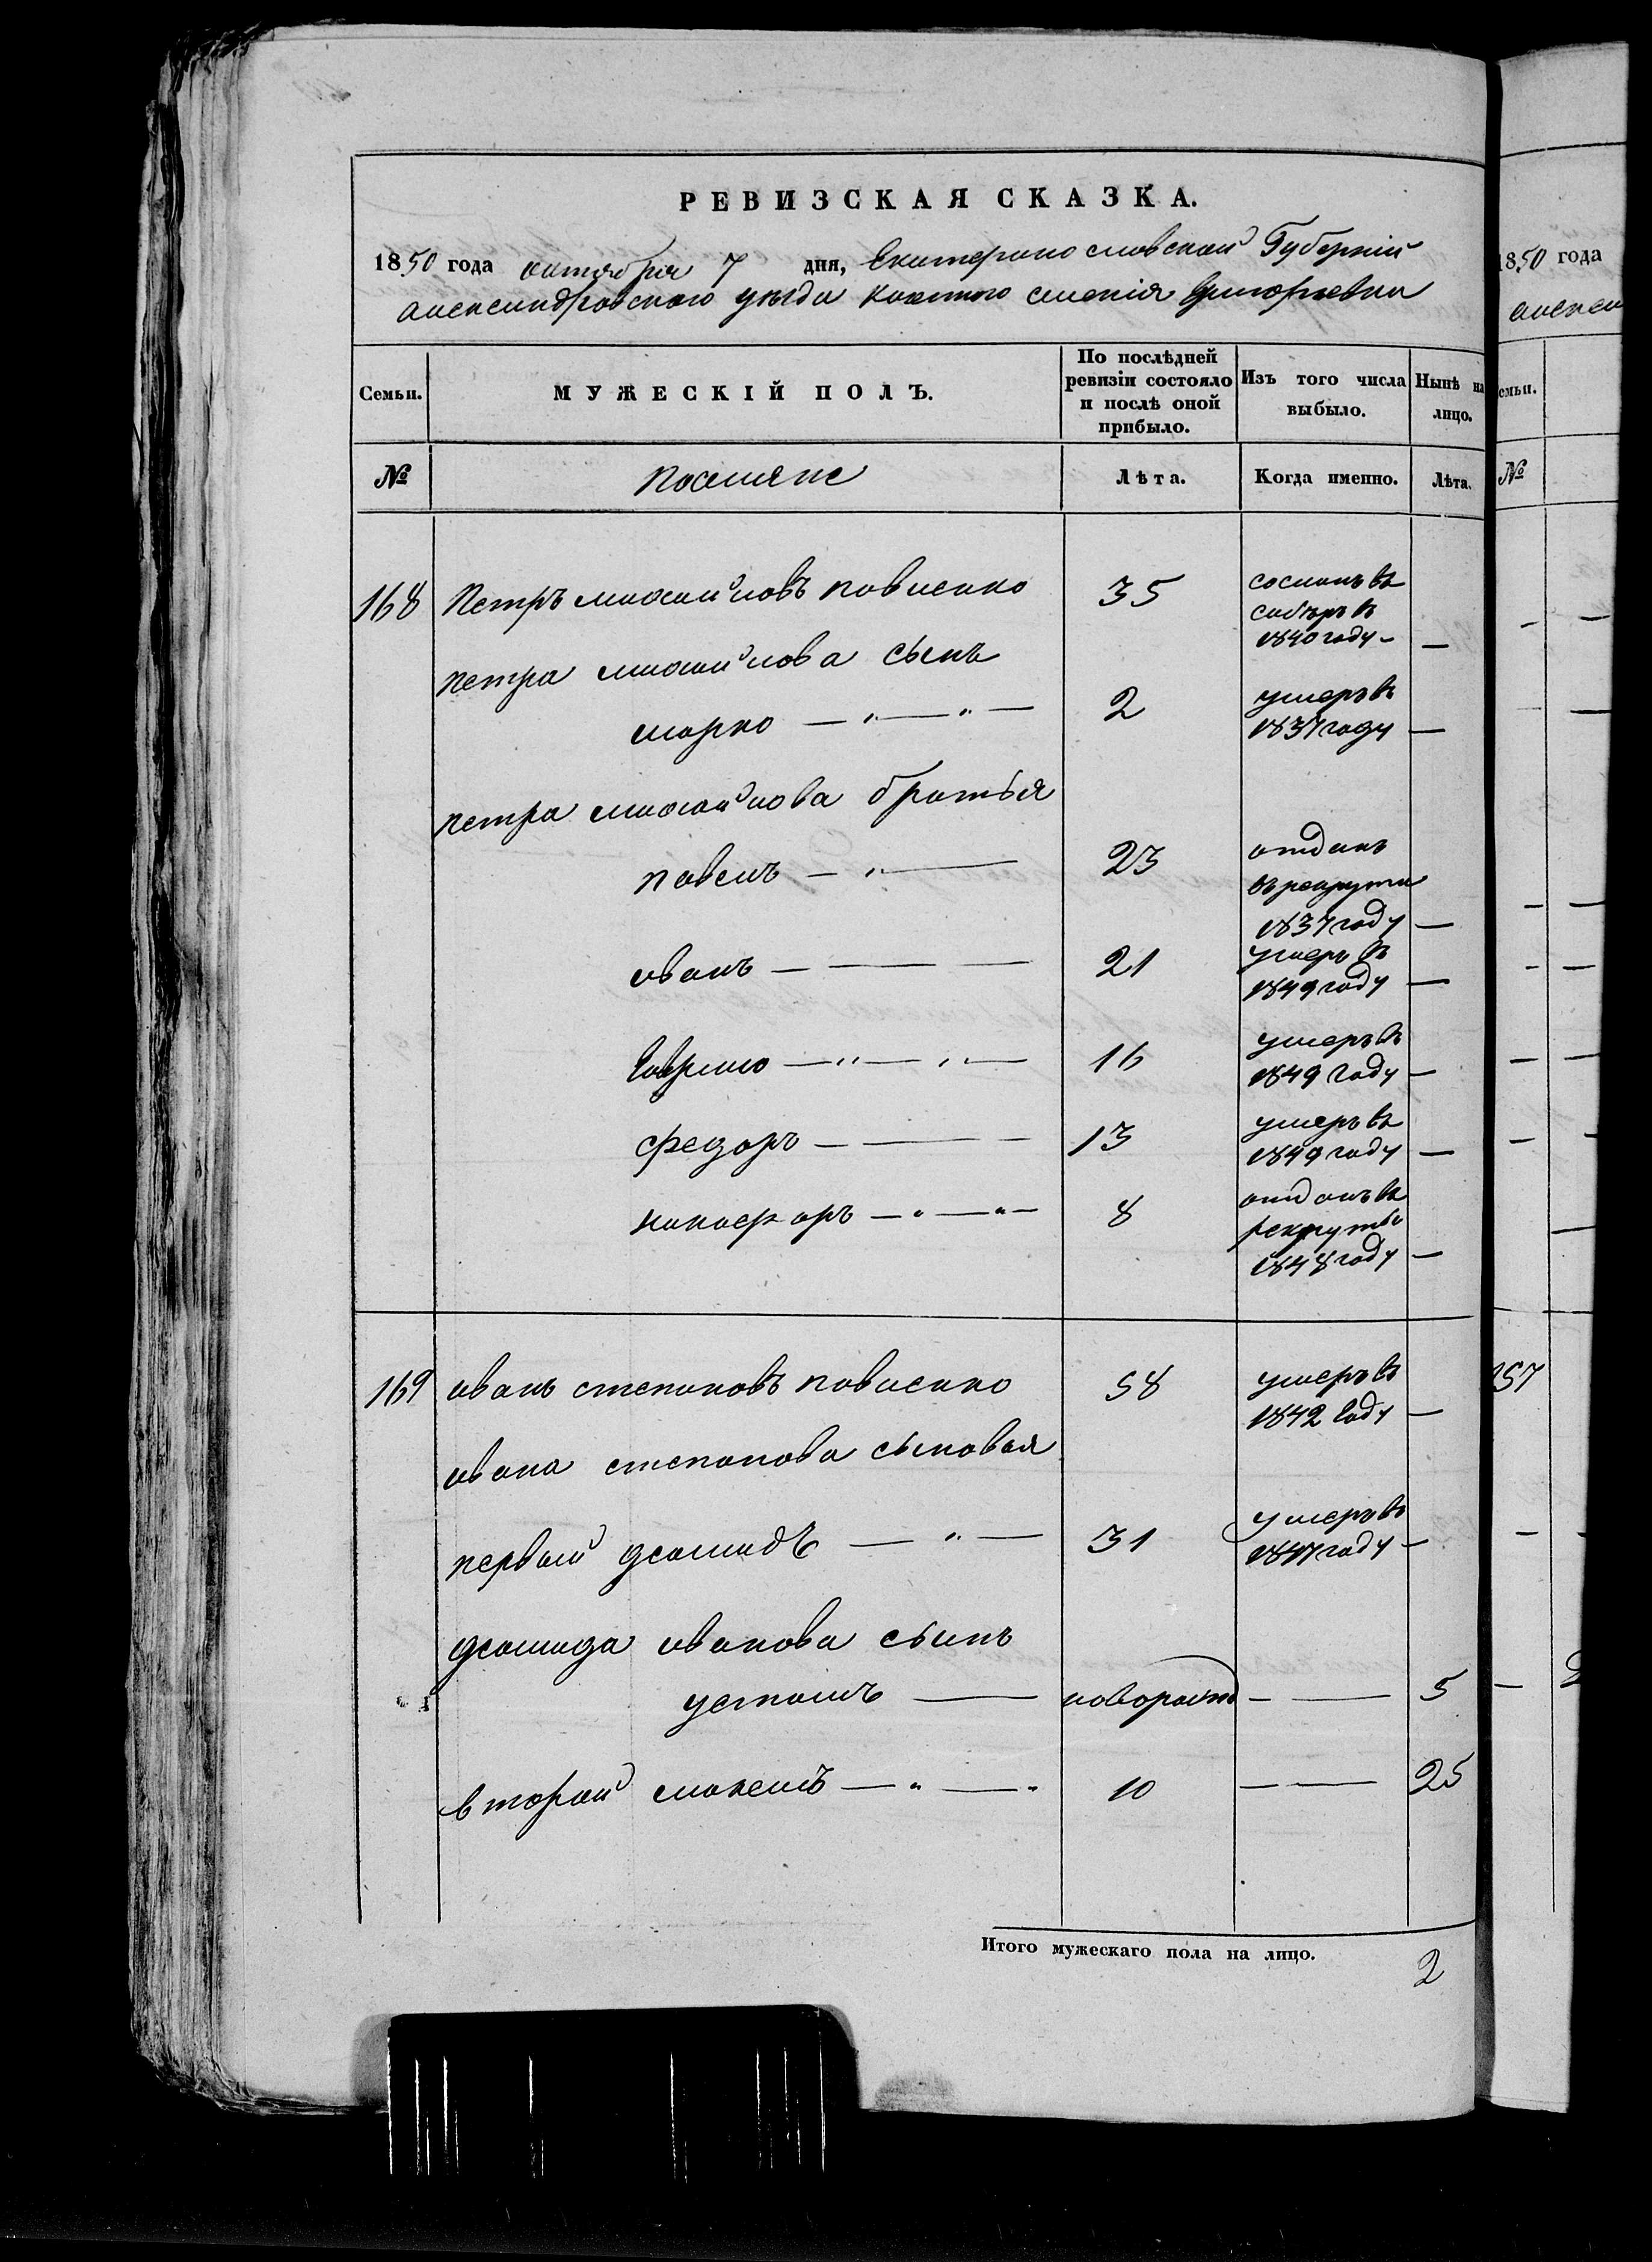 РЕВИЗСКАЯ СКАЗКА.
1850 года октября 7 дня, Екатеринославской Губерніи
Александровского уезда Григорьевки
Семьи.
МУЖЕСКІЙ ПОЛЪ.
По послѣдней ревизіи состояло и послѣ оной прибыло.
Изъ того числа выбыло.
Нынѣ на лицо.
№
Лѣта.
Когда именно.
Лѣта.
168 Петръ михайловъ павленко 35 сосланъ въ
сибѣръ в
1840 году —
петра михайлова сынъ
марко 2 умеръ въ
1837 году —
петра михайлова братья
павелъ 23 отданъ
въ рекруты
1837 году —
иванъ 21 умеръ въ
1849 году —
Гаврило 16 умеръ въ
1849 году —
федоръ 13 умеръ въ
1849 году —
никифоръ 8 отданъ въ
рекруты
1848 году —
169 иванъ степановъ павленко 58 умеръ въ
1842 Году —
ивана степанова сыновья
первый демидъ 31 умеръ въ
1847 году —
демида иванова сынъ
устимъ 5
второй 10 25
Итого мужескаго пола на лицо. 2
1850 года
семьи.
№